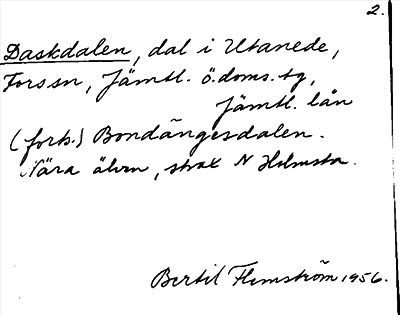 2.
Daskdalen, dal i Utanede,
Fors sn, Jämtl. ö. doms. tg,
Jämtl. län
(forts.) Bondängesdalen.
Nära älven, strax N Holmsta.
Bertil Flemström 1956.